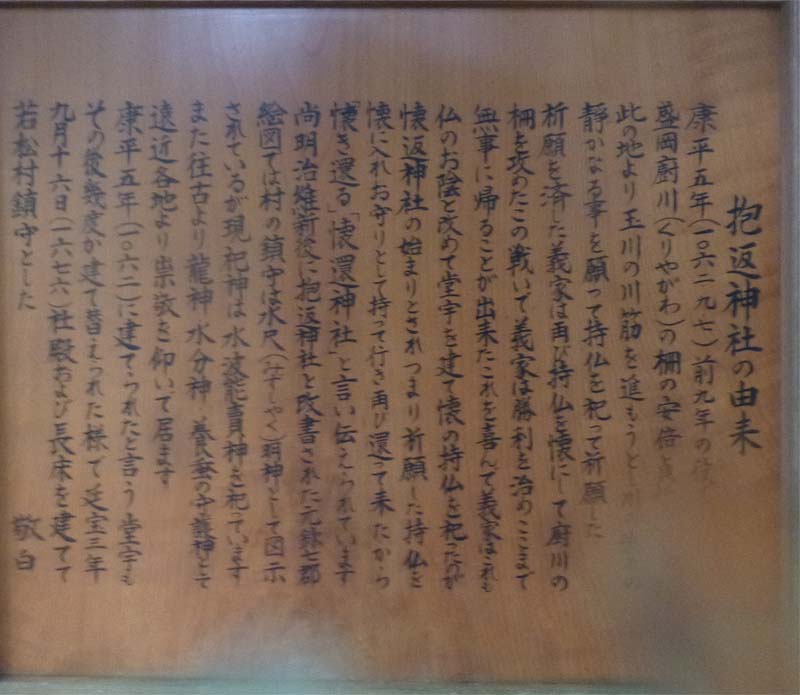 抱返神社の由来
康平五年(一〇六二 九七)前九年の
盛岡厨川(くりやがわ)の柵の安倍
此の地より玉川の川筋を進もうと
静かなる事を願って持仏を祀って祈願した
祈願を済した義家は再び持仏を懐にして厨川の
柵を攻めたこの戦いで義家は勝利を治めここまで
無事に帰ることが出来たこれを喜んで義家はこれも
仏のお陰と改めて堂宇を建て懐の持仏を祀ったのが
懐返神社の始まりとされつまり祈願した持仏を
懐に入れお守りとして持って行き再び還って来たから
「懐き還る」「懐還神社」と言い伝えられています
尚明治維新後に抱返神社と改書された元禄七郡
絵図では村の鎮守は水尺(みずしゃく)明神として図示
されているが現祀神は水波能売神を祀っています
また往古より龍神 水分神 養蚕の守護神として
遠近各地より崇敬を仰いで居ます
康平五年(一〇六二)に建てられたと言う堂宇も
その後幾度か建て替えられた様で延宝三年
九月十六日(一六七六)社殿および長床を建てて
若松村鎮守とした 敬白